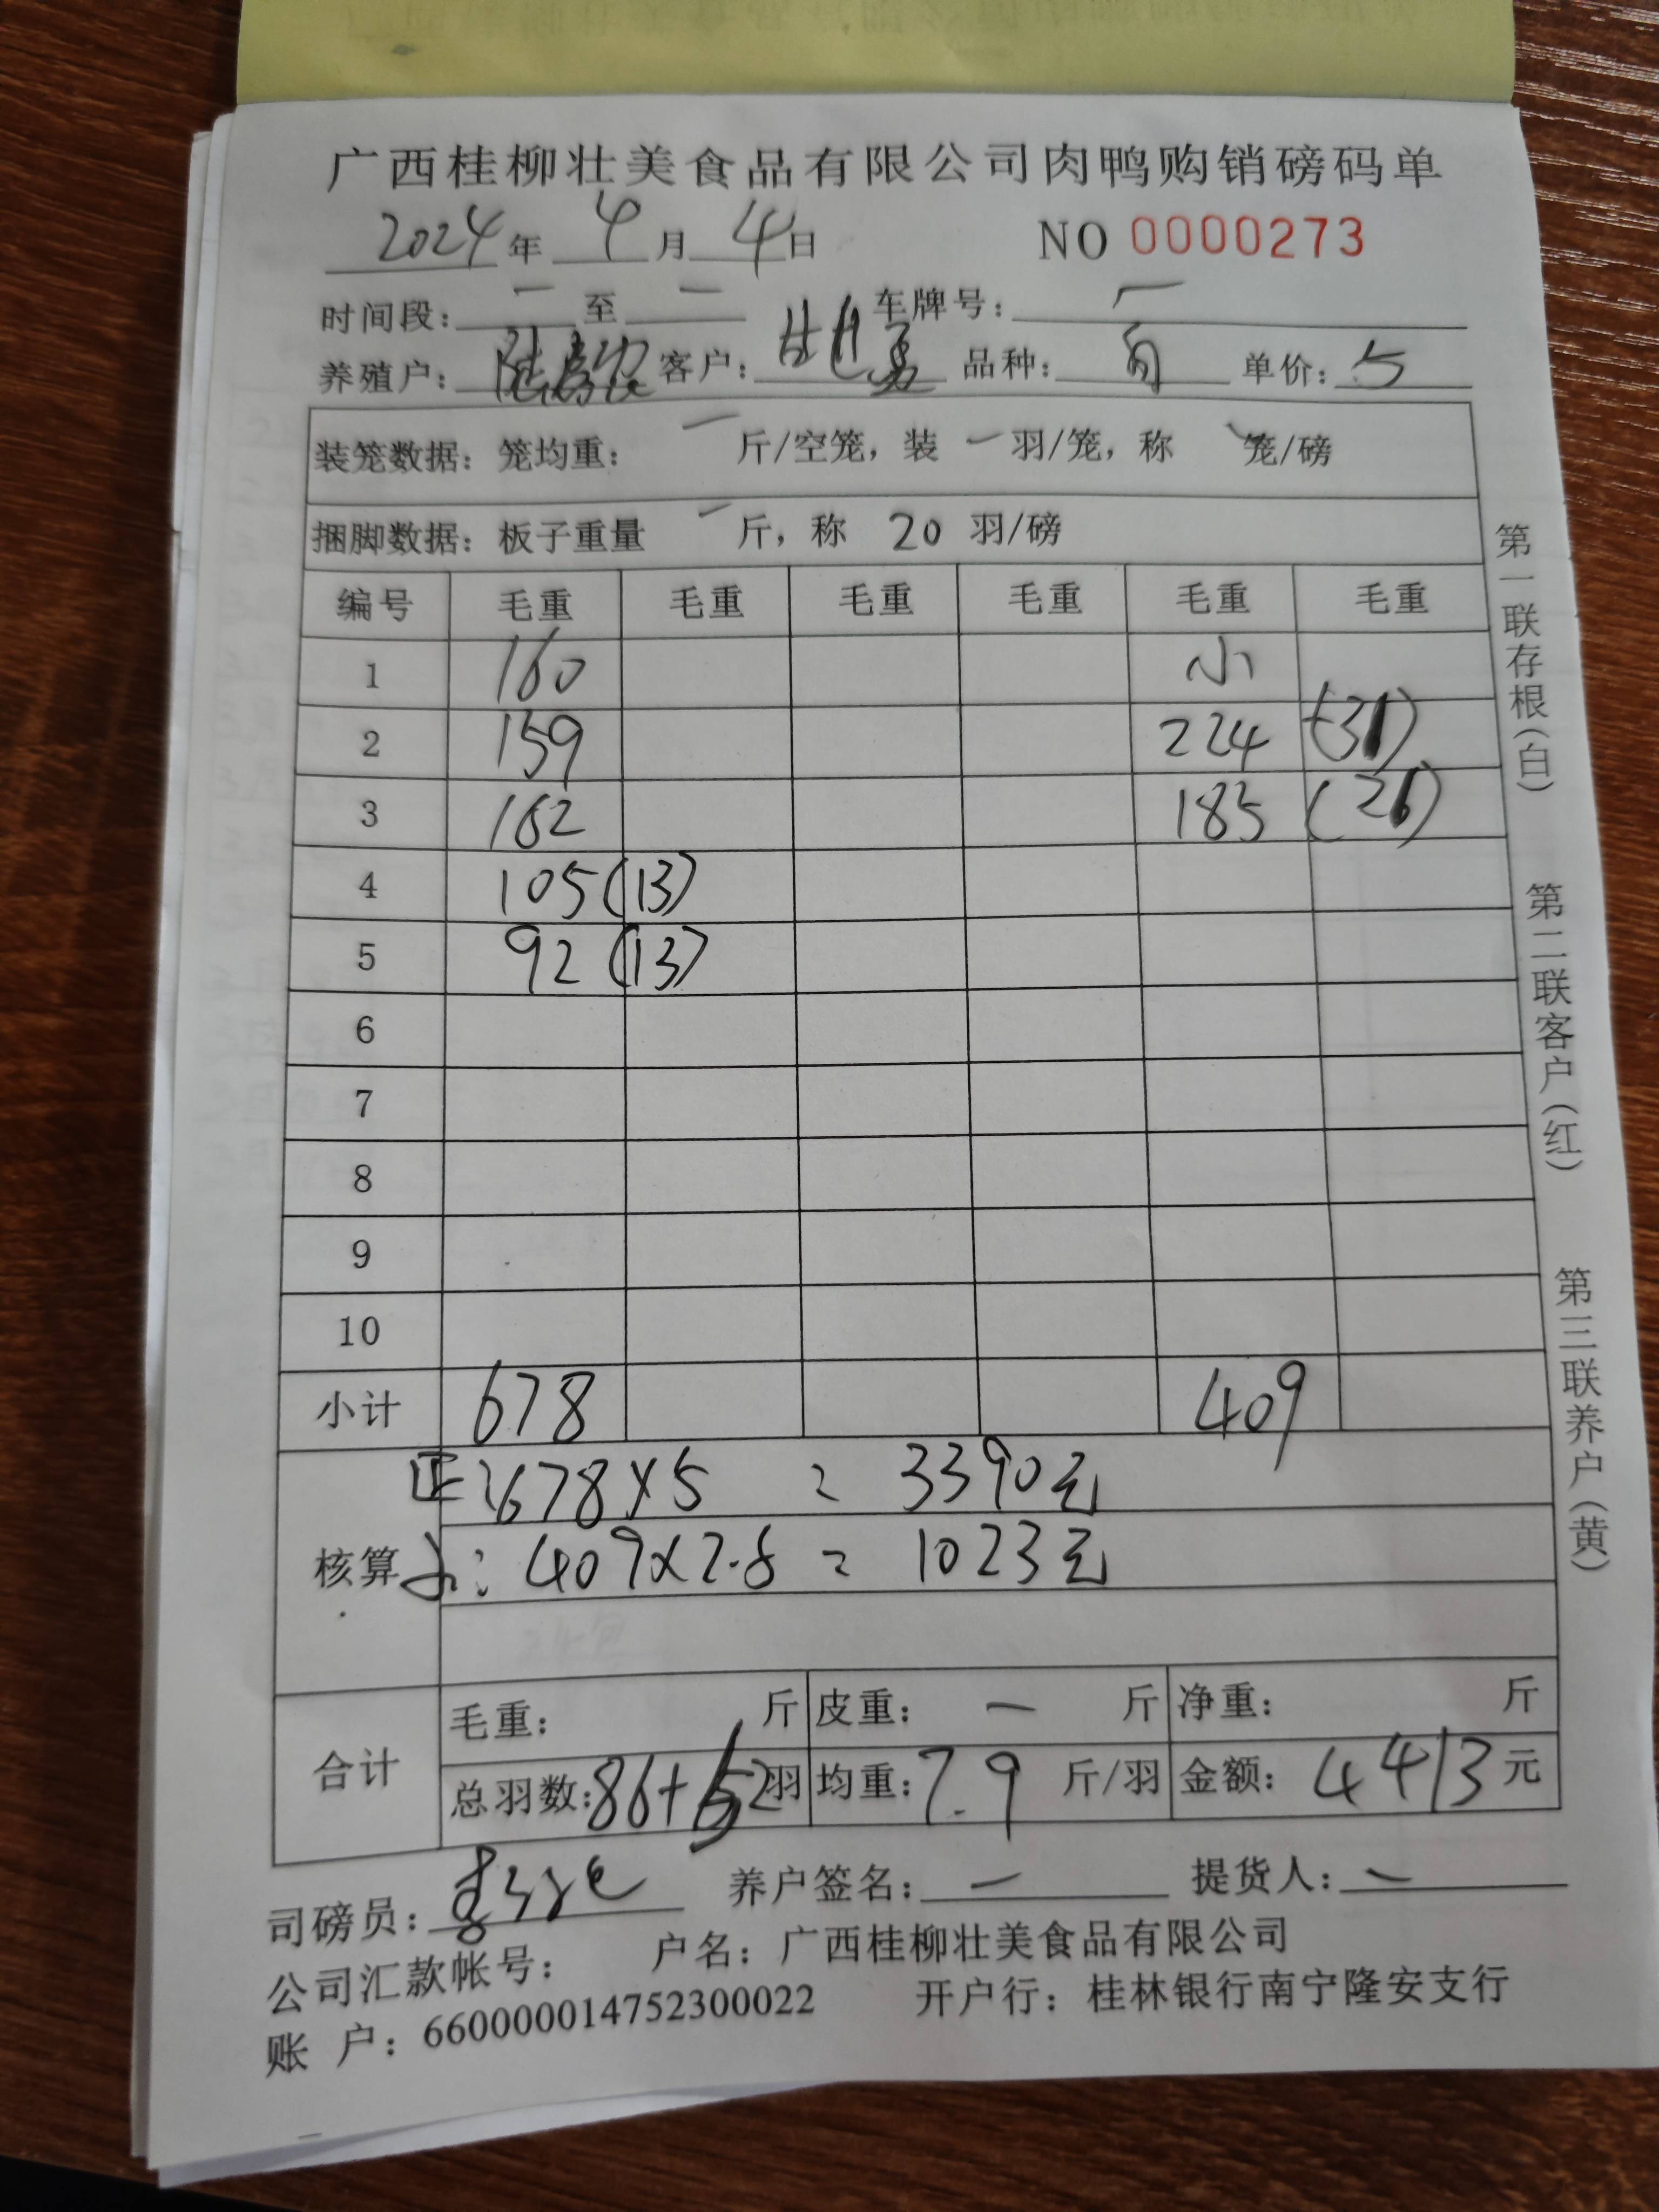 广西桂柳壮美食品有限公司肉鸭购销磅码单
2024年 4月 4日 NO 0000273
时间段: 一 至 一 车牌号: 一
养殖户: 客户: 品种: 单价: 5
装笼数据: 笼均重: 一 斤/空笼, 装 一 羽/笼, 称 笼/磅
捆脚数据: 板子重量 一 斤, 称 20 羽/磅
编号 毛重 毛重 毛重 毛重 毛重 毛重
1 160 小
2 159 224 (31)
3 162 185
4 105 (13)
5 92 (13)
6
7
8
9
10
小计 678 409
核算
正: 678×5 = 3390元
小: 409×2.5 = 1023元
合计
毛重: 斤 皮重: 一 斤 净重: 斤
总羽数: 86+ 羽 均重: 7.9 斤/羽 金额: 4413 元
司磅员: 养户签名: 一 提货人: 一
公司汇款帐号: 户名: 广西桂柳壮美食品有限公司
账 户: 660000014752300022 开户行: 桂林银行南宁隆安支行
第一联存根(白) 第二联客户(红) 第三联养户(黄)